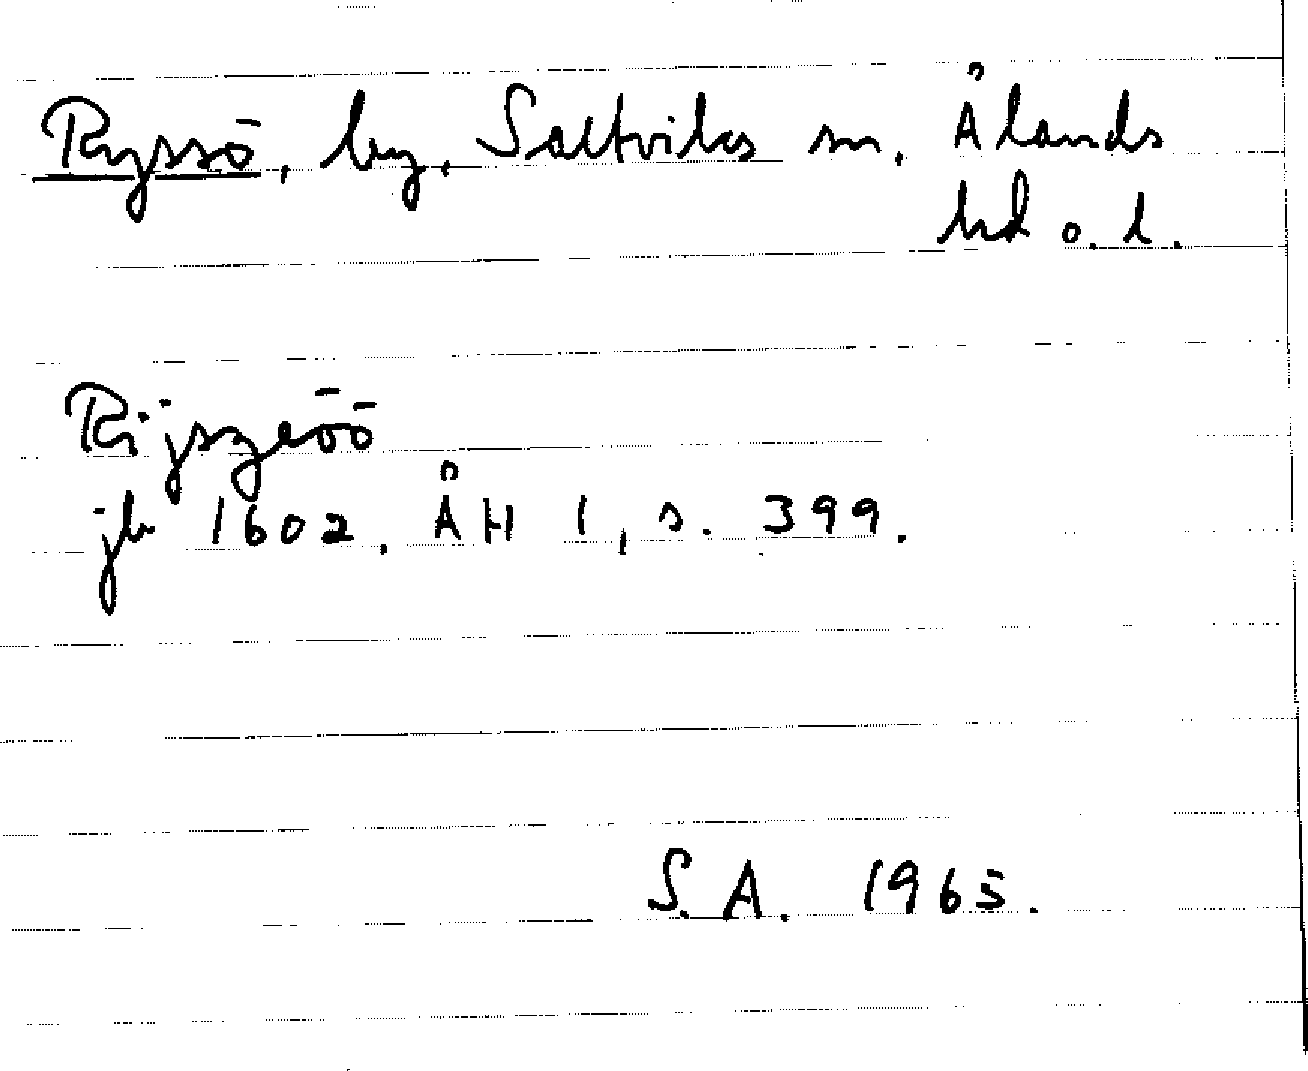 Ryssö, by, Saltviks sn, Ålands
hd o. l.
Rijszeöö
jb 1602, ÅH 1, s. 399.
S.A. 1965.